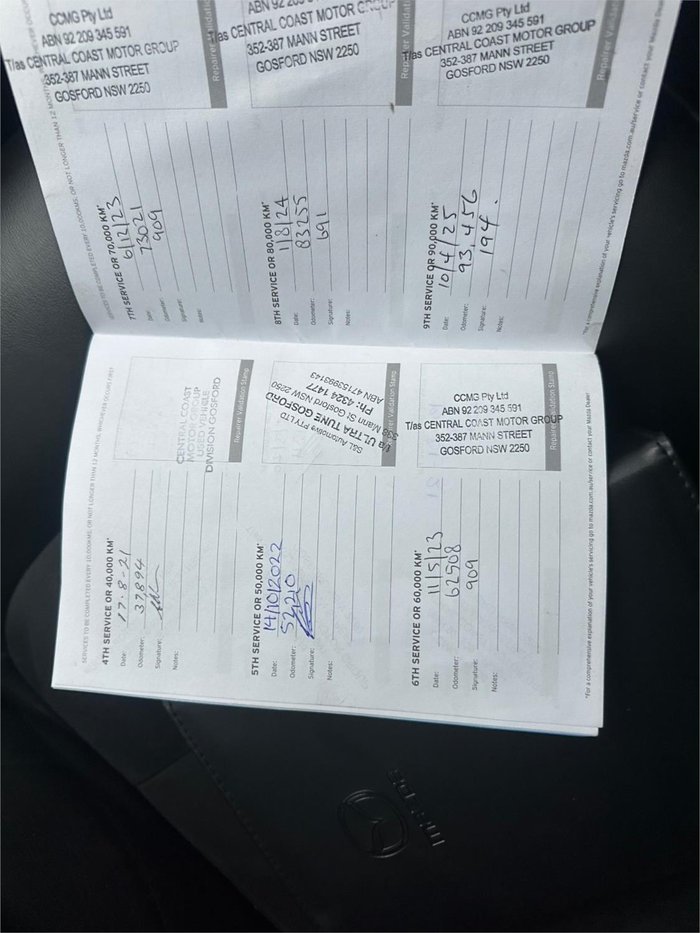 SERVICES TO BE COMPLETED EVERY 10,000KMS, OR NOT LONGER THAN 12 MONTHS, WHICHEVER OCCURS FIRST
4TH SERVICE OR 40,000 KM*
Date: 17-8-21
Odometer: 37,894
Signature:
Notes:
CENTRAL COAST
MOTOR GROUP
USED VEHICLE
DIVISION GOSFORD
Repairer Validation Stamp
5TH SERVICE OR 50,000 KM*
Date: 14/10/2022
Odometer: 52210
Signature:
Notes:
S&L Automotive PTY LTD
t/a ULTRA TUNE GOSFORD
Mann St Gosford NSW 2250
Ph: 4324 1477
ABN 47153993143
Validation Stamp
6TH SERVICE OR 60,000 KM*
Date: 11/5/23
Odometer: 62508
Signature: 909
Notes:
CCMG Pty Ltd
ABN 92 209 345 591
T/as CENTRAL COAST MOTOR GROUP
352-387 MANN STREET
GOSFORD NSW 2250
Repairer Validation Stamp
*For a comprehensive explanation of your vehicle's servicing go to mazda.com.au/service or contact your Mazda Dealer
SERVICES TO BE COMPLETED EVERY 10,000KMS, OR NOT LONGER THAN 12 MONTHS,
7TH SERVICE OR 70,000 KM*
Date: 6/12/23
Odometer: 73021
Signature: 909
Notes:
CCMG Pty Ltd
ABN 92 209 345 591
T/as CENTRAL COAST MOTOR GROUP
352-387 MANN STREET
GOSFORD NSW 2250
Repairer
8TH SERVICE OR 80,000 KM*
Date: 1/8/24
Odometer: 83255
Signature: 691
Notes:
T/as CENTRAL COAST MOTOR GROUP
352-387 MANN STREET
GOSFORD NSW 2250
Repairer
9TH SERVICE OR 90,000 KM*
Date: 10/4/25
Odometer: 93,456
Signature: 194.
Notes:
CCMG Pty Ltd
ABN 92 209 345 591
T/as CENTRAL COAST MOTOR GROUP
352-387 MANN STREET
GOSFORD NSW 2250
Repairer
*For a comprehensive explanation of your vehicle's servicing go to mazda.com.au/service or contact your Mazda Dealer
mazda